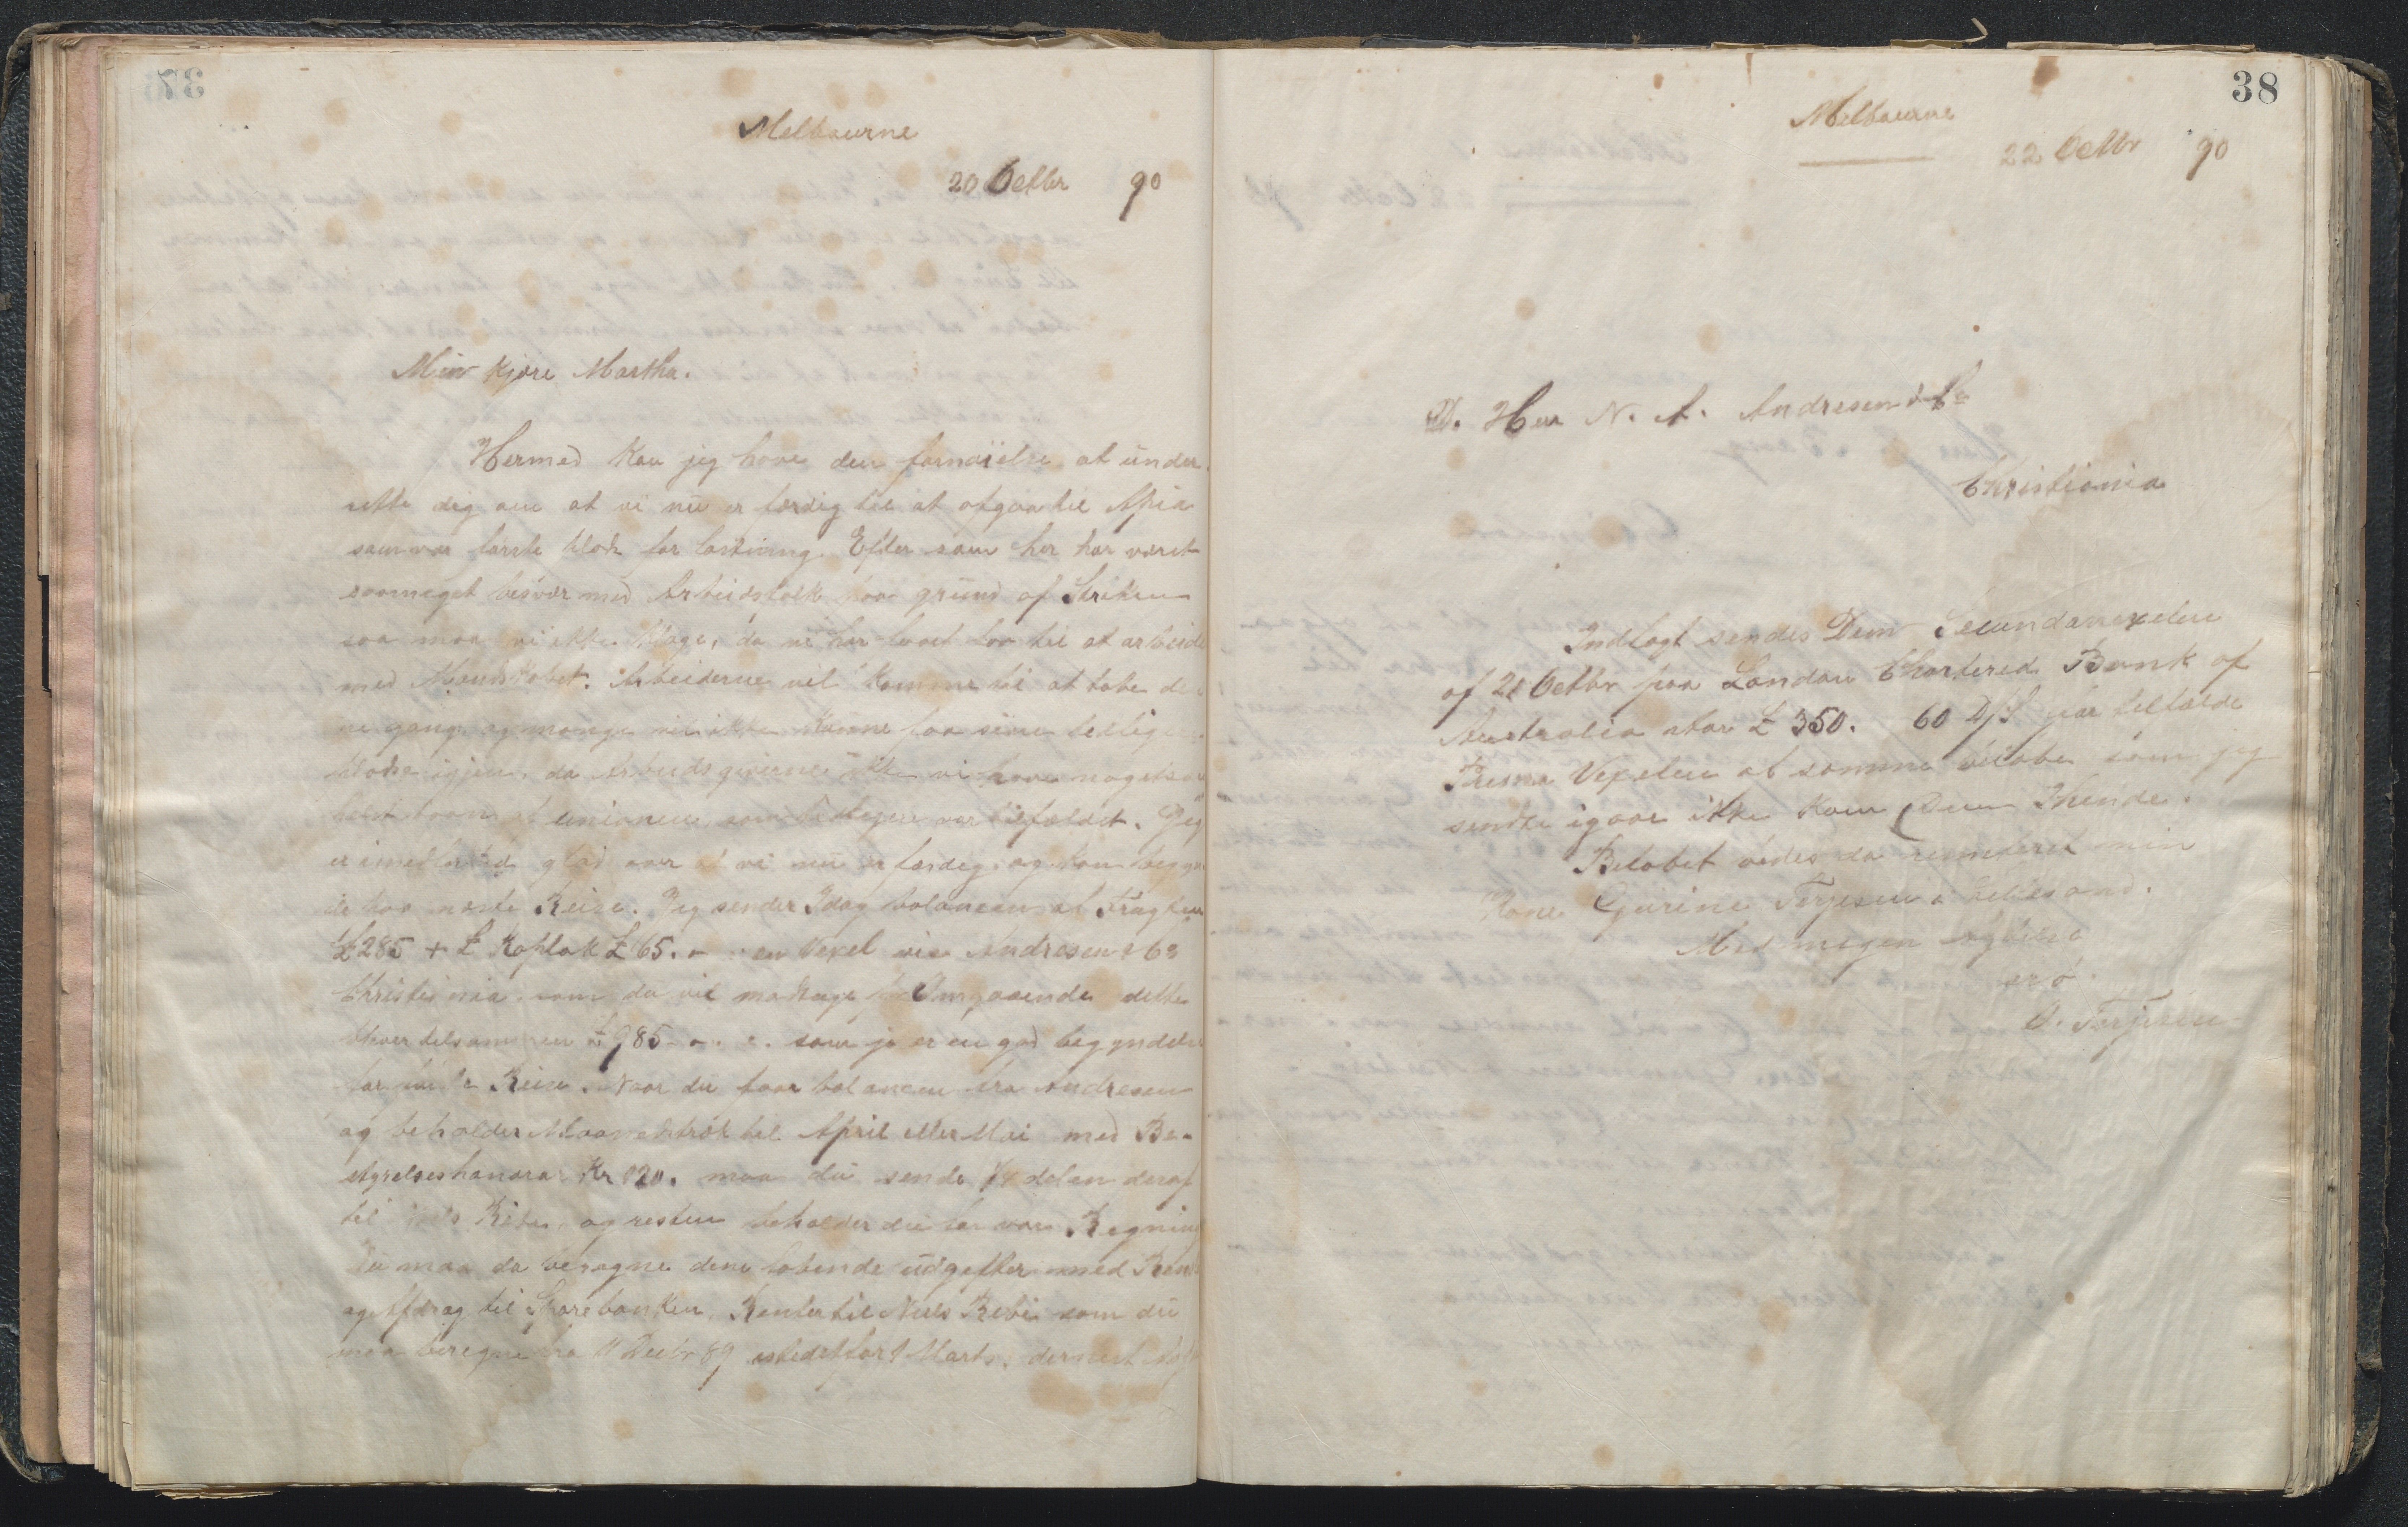 37
Melbourne
20 Octbr 90
Min kjære Martha.
Hermed kan jeg have den fornøielse at under
rette dig om at vi nu er færdig til at afgaa til Apia
som var første Plads for lastning. Efter som her har været
saameget besvær med Arbeidsfolk paa grund af Striken
saa maa vi ikke klage, da vi har faaet lov til at arbeide
med Mandskabet. Arbeiderne vil komme til at tabe den
ne gang og mange vil ikke kunne faa sine ledige
pladse igjen, da Arbeidsgiverne ikke vil have noget som
helst af unionen som var tilfældet. Jeg
er imidlertid glad over at vi nu er færdig og kan begyn
de paa næste Reise. Jeg sender Idag balancen af Fragten
£ 285 + £ Kaplak £ 65. – en Vexel via Andresen & Co
Christiania som du vil modtage dette
tilsammen £ 985 – som jo er en god begyndelse
for Reise. Naar du faar balancen fra Andresen
og beholder til April eller Mai med Be-
styrelseshonorar Kr 120. maa du sende delen deraf
til og resten beholder du for vor Regning
Du maa da beregne dine løbende udgifter med Rente
og Afdrag til Sparebanken, Renter til Niels som du
maa beregne fra 11 Decbr 89 istedetfor 1 Marts, dernest
38
Melbourne
22 Octbr 90
D. Herr N. A. Andresen & Co
Christiania
Indlagt sendes Dem Secundavexelen
af 21 Octbr paa London Chartered Bank of
Australia stor £ 350. 60 D/S for tilfælde
Prima Vexelen af samme beløb som jeg
sendte igaar ikke kom Dem Ihende.
Beløbet bedes da remitteret min
Kone Gurine Terjesen a Lillesand.
Med megen agtelse
er
O. Terjesen